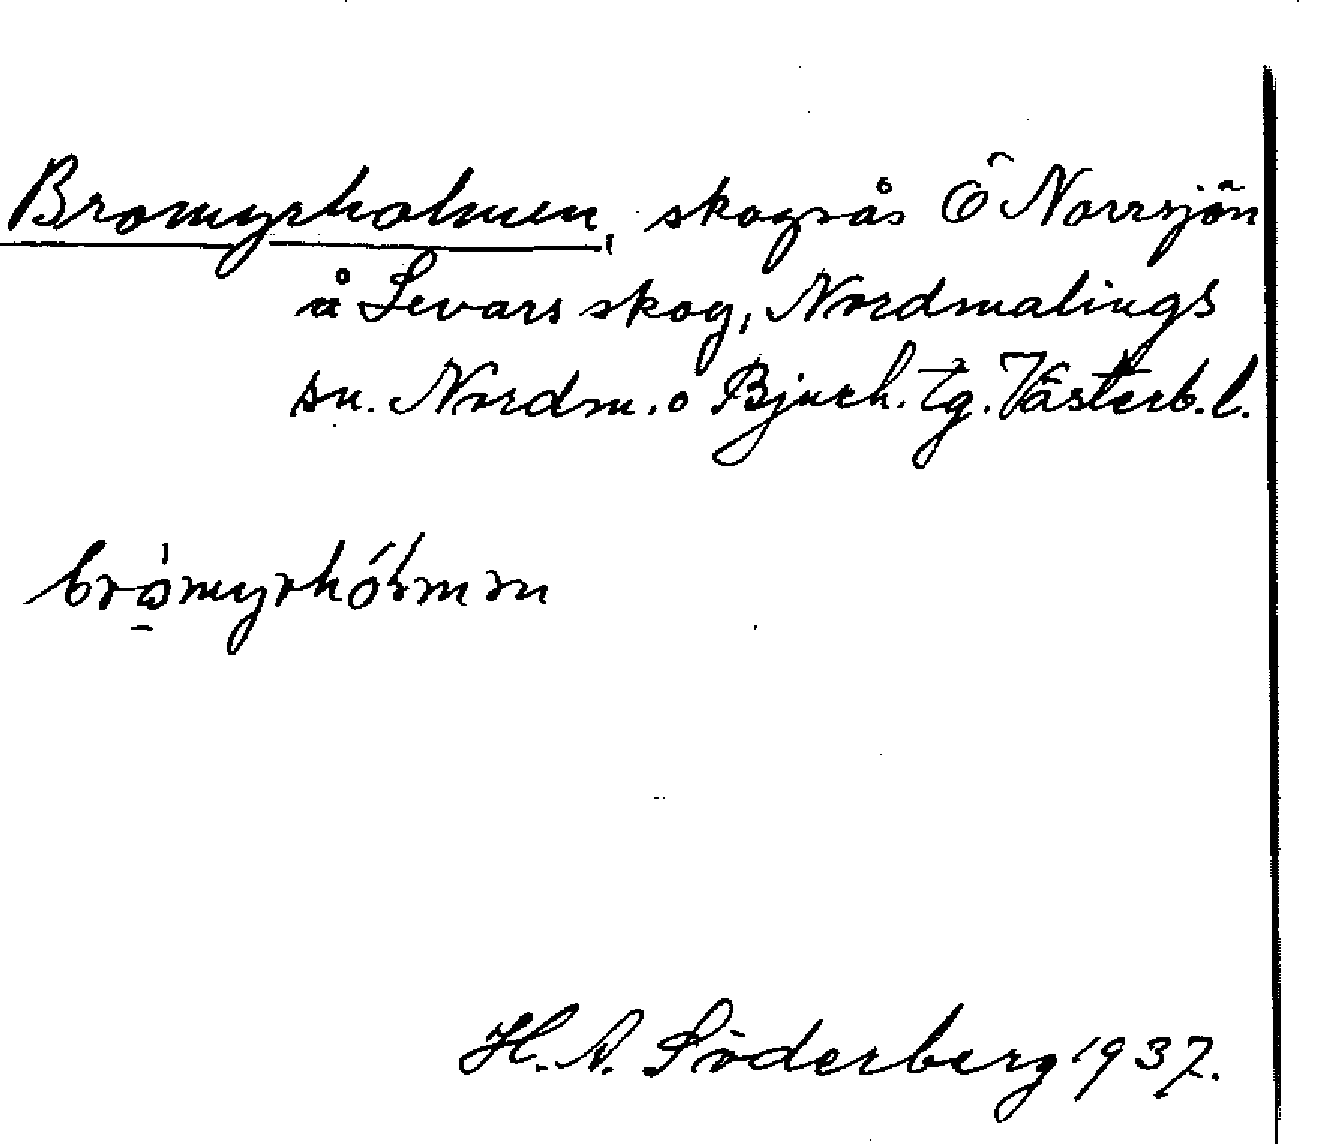 Bromyrholmen, skogsås Ö Norrsjön
å Levars skog, Nordmalings
sn. Nordm. o Bjurh. tg. Västerb. l.
H. A. Söderberg 1937.